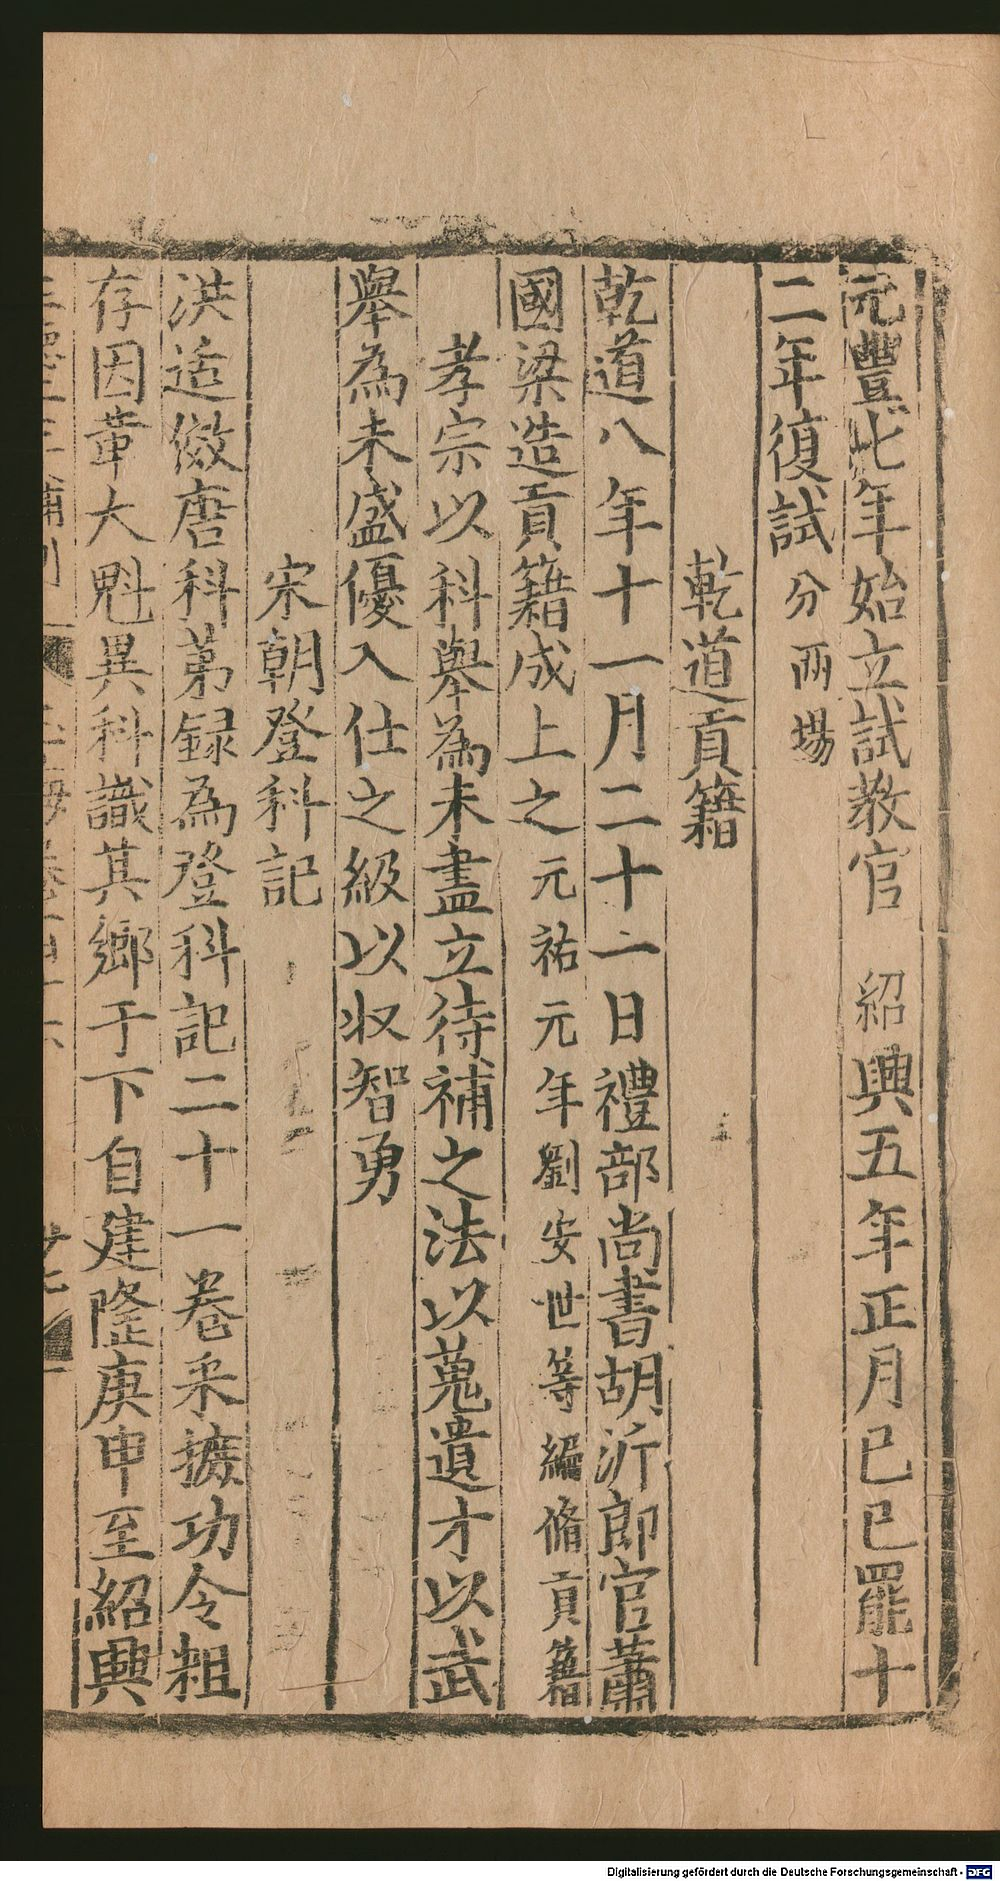 元豐七年始立試教官 紹興五年正月己巳罷十
二年復試分兩場
乾道貢籍
乾道八年十一月二十一日禮部尚書胡沂郎官蕭
國梁造貢籍成上之元祐元年劉安世等編脩貢籍
孝宗以科舉為未盡立待補之法以蒐遺才以武
舉為未盛優入仕之級以収智勇
宋朝登科記
洪适倣唐科第録為登科記二十一卷采摭功令粗
存因章大魁異科識其鄉于下自建隆庚申至紹興
Digitalisierung gefördert durch die Deutsche Forschungsgemeinschaft - DFG